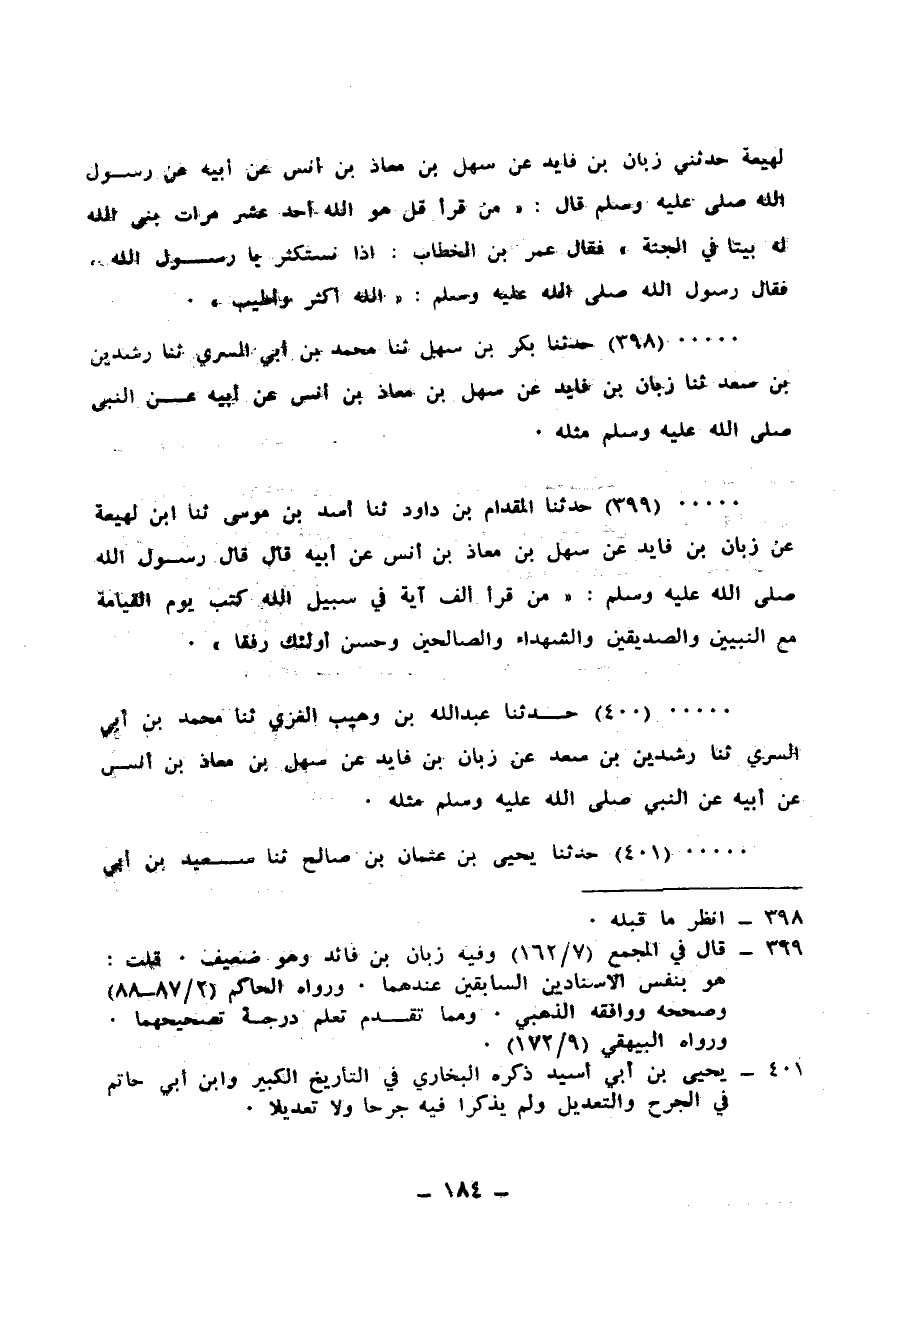 لهيعة حدثني زبان بن فايد عن سهل بن معاذ بن أنس عن أبيه عن رسول
الله صلى عليه وسلم قال : « من قرأ قل هو الله أحد عشر مرات بنى الله
له بيتا في الجنة » فقال عمر بن الخطاب : اذا نستكثر يا رسول الله ..
فقال رسول الله صلى الله عليه وسلم : « الله أكثر وأطيب » ٠
٠٠٠٠٠ (٣٩٨) حدثنا بكر بن سهل ثنا محمد بن أبي السري ثنا رشدين
بن سعد ثنا زبان بن فايد عن سهل بن معاذ بن أنس عن أبيه عن النبي
صلى الله عليه وسلم مثله ٠
٠٠٠٠٠ (٣٩٩) حدثنا المقدام بن داود ثنا أسد بن موسى ثنا ابن لهيعة
عن زبان بن فايد عن سهل بن معاذ بن أنس عن أبيه قال قال رسول الله
صلى الله عليه وسلم : « من قرأ ألف آية في سبيل الله كتب يوم القيامة
مع النبيين والصديقين والشهداء والصالحين وحسن أولئك رفقا » ٠
٠٠٠٠٠ (٤٠٠) حدثنا عبدالله بن وهيب الغزي ثنا محمد بن أبي
السري ثنا رشدين بن سعد عن زبان بن فايد عن سهل بن معاذ بن أنس
عن أبيه عن النبي صلى الله عليه وسلم مثله ٠
٠٠٠٠٠ (٤٠١) حدثنا يحيى بن عثمان بن صالح ثنا سعيد بن أبي
٣٩٨ ــ انظر ما قبله ٠
٣٩٩ ــ قال في المجمع (١٦٢/٧) وفيه زبان بن فائد وهو ضعيف ٠ قلت :
هو بنفس الاسنادين السابقين عندهما ٠ ورواه الحاكم (٨٧/٢ــ٨٨)
وصححه ووافقه الذهبي ٠ ومما تقدم تعلم درجة تصحيحهما ٠
ورواه البيهقي (١٧٢/٩) ٠
٤٠١ ــ يحيى بن أبي أسيد ذكره البخاري في التأريخ الكبير وابن أبي حاتم
في الجرح والتعديل ولم يذكرا فيه جرحا ولا تعديلا ٠
ــ ١٨٤ ــ